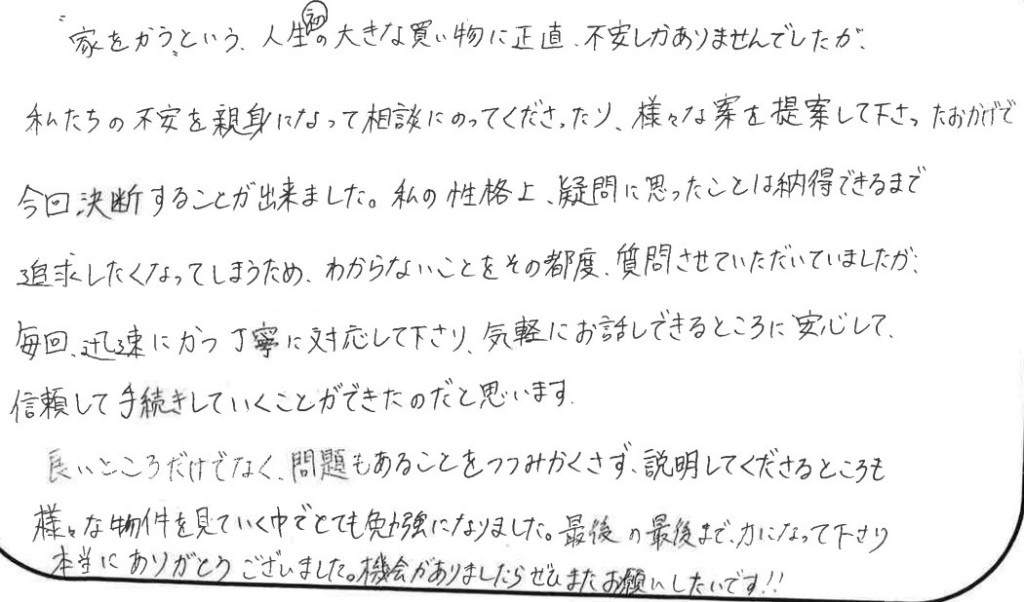 "家をかう"という、人生初の大きな買い物に正直、不安しかありませんでしたが、
私たちの不安を親身になって相談にのってくださったり、様々な案を提案して下さったおかげで
今回決断することが出来ました。私の性格上、疑問に思ったことは納得できるまで
追求したくなってしまうため、わからないことをその都度、質問させていただいていましたが、
毎回、迅速にかつ丁寧に対応して下さり、気軽にお話しできるところに安心して、
信頼して手続きしていくことができたのだと思います。
良いところだけでなく、問題もあることをつつみかくさず、説明してくださるところも
様々な物件を見ていく中でとても勉強になりました。最後の最後まで、力になって下さり
本当にありがとうございました。機会がありましたらぜひまたお願いしたいです!!